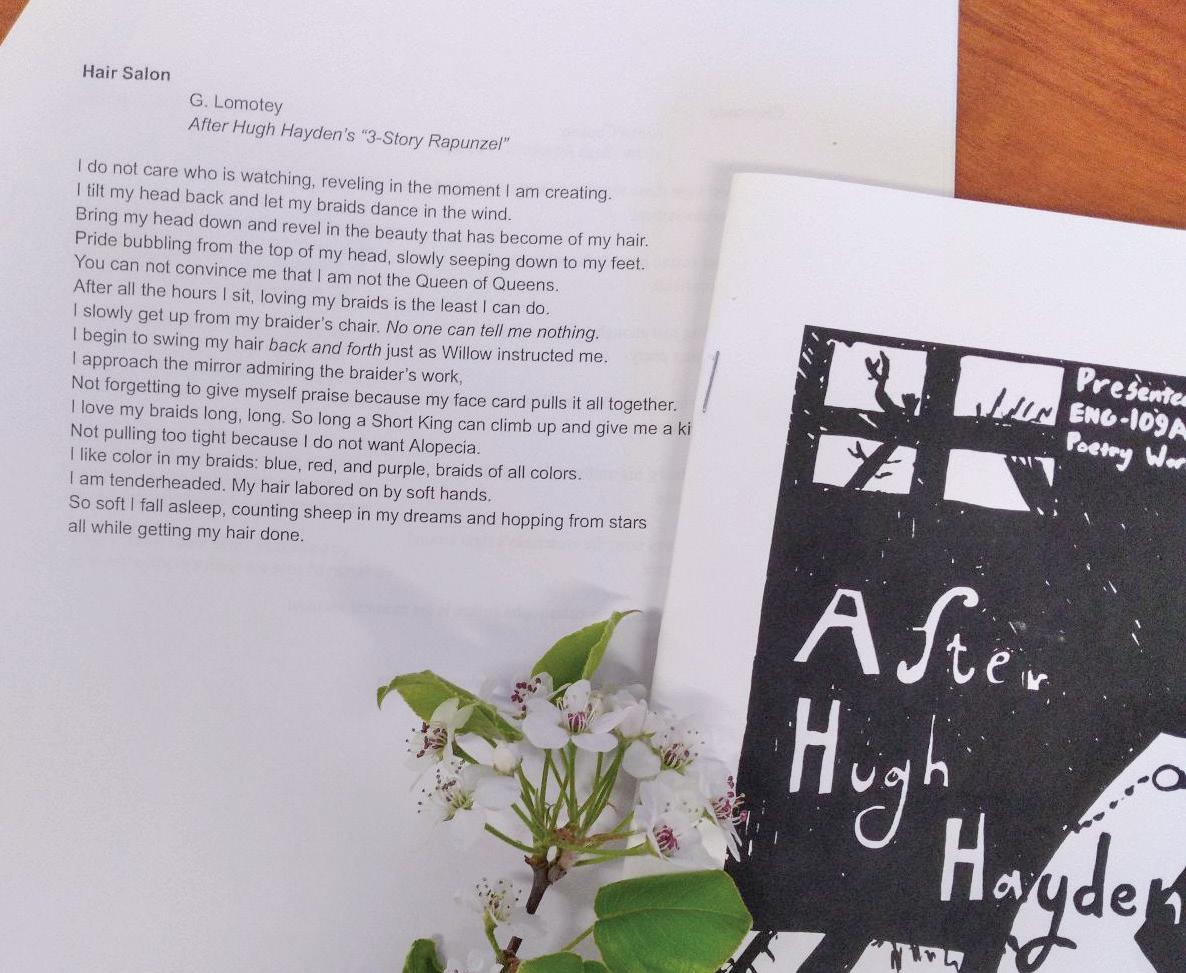 Hair Salon
G. Lomotey
After Hugh Hayden's "3-Story Rapunzel"
I do not care who is watching, reveling in the moment I am creating.
I tilt my head back and let my braids dance in the wind.
Bring my head down and revel in the beauty that has become of my hair.
Pride bubbling from the top of my head, slowly seeping down to my feet.
You can not convince me that I am not the Queen of Queens.
After all the hours I sit, loving my braids is the least I can do.
I slowly get up from my braider's chair. No one can tell me nothing.
I begin to swing my hair back and forth just as Willow instructed me.
I approach the mirror admiring the braider's work,
Not forgetting to give myself praise because my face card pulls it all together.
I love my braids long, long. So long a Short King can climb up and give me a
Not pulling too tight because I do not want Alopecia.
I like color in my braids: blue, red, and purple, braids of all colors.
I am tenderheaded. My hair labored on by soft hands.
So soft I fall asleep, counting sheep in my dreams and hopping from stars
all while getting my hair done.
ENG-109A
Poetry
After
Hugh
Hayden